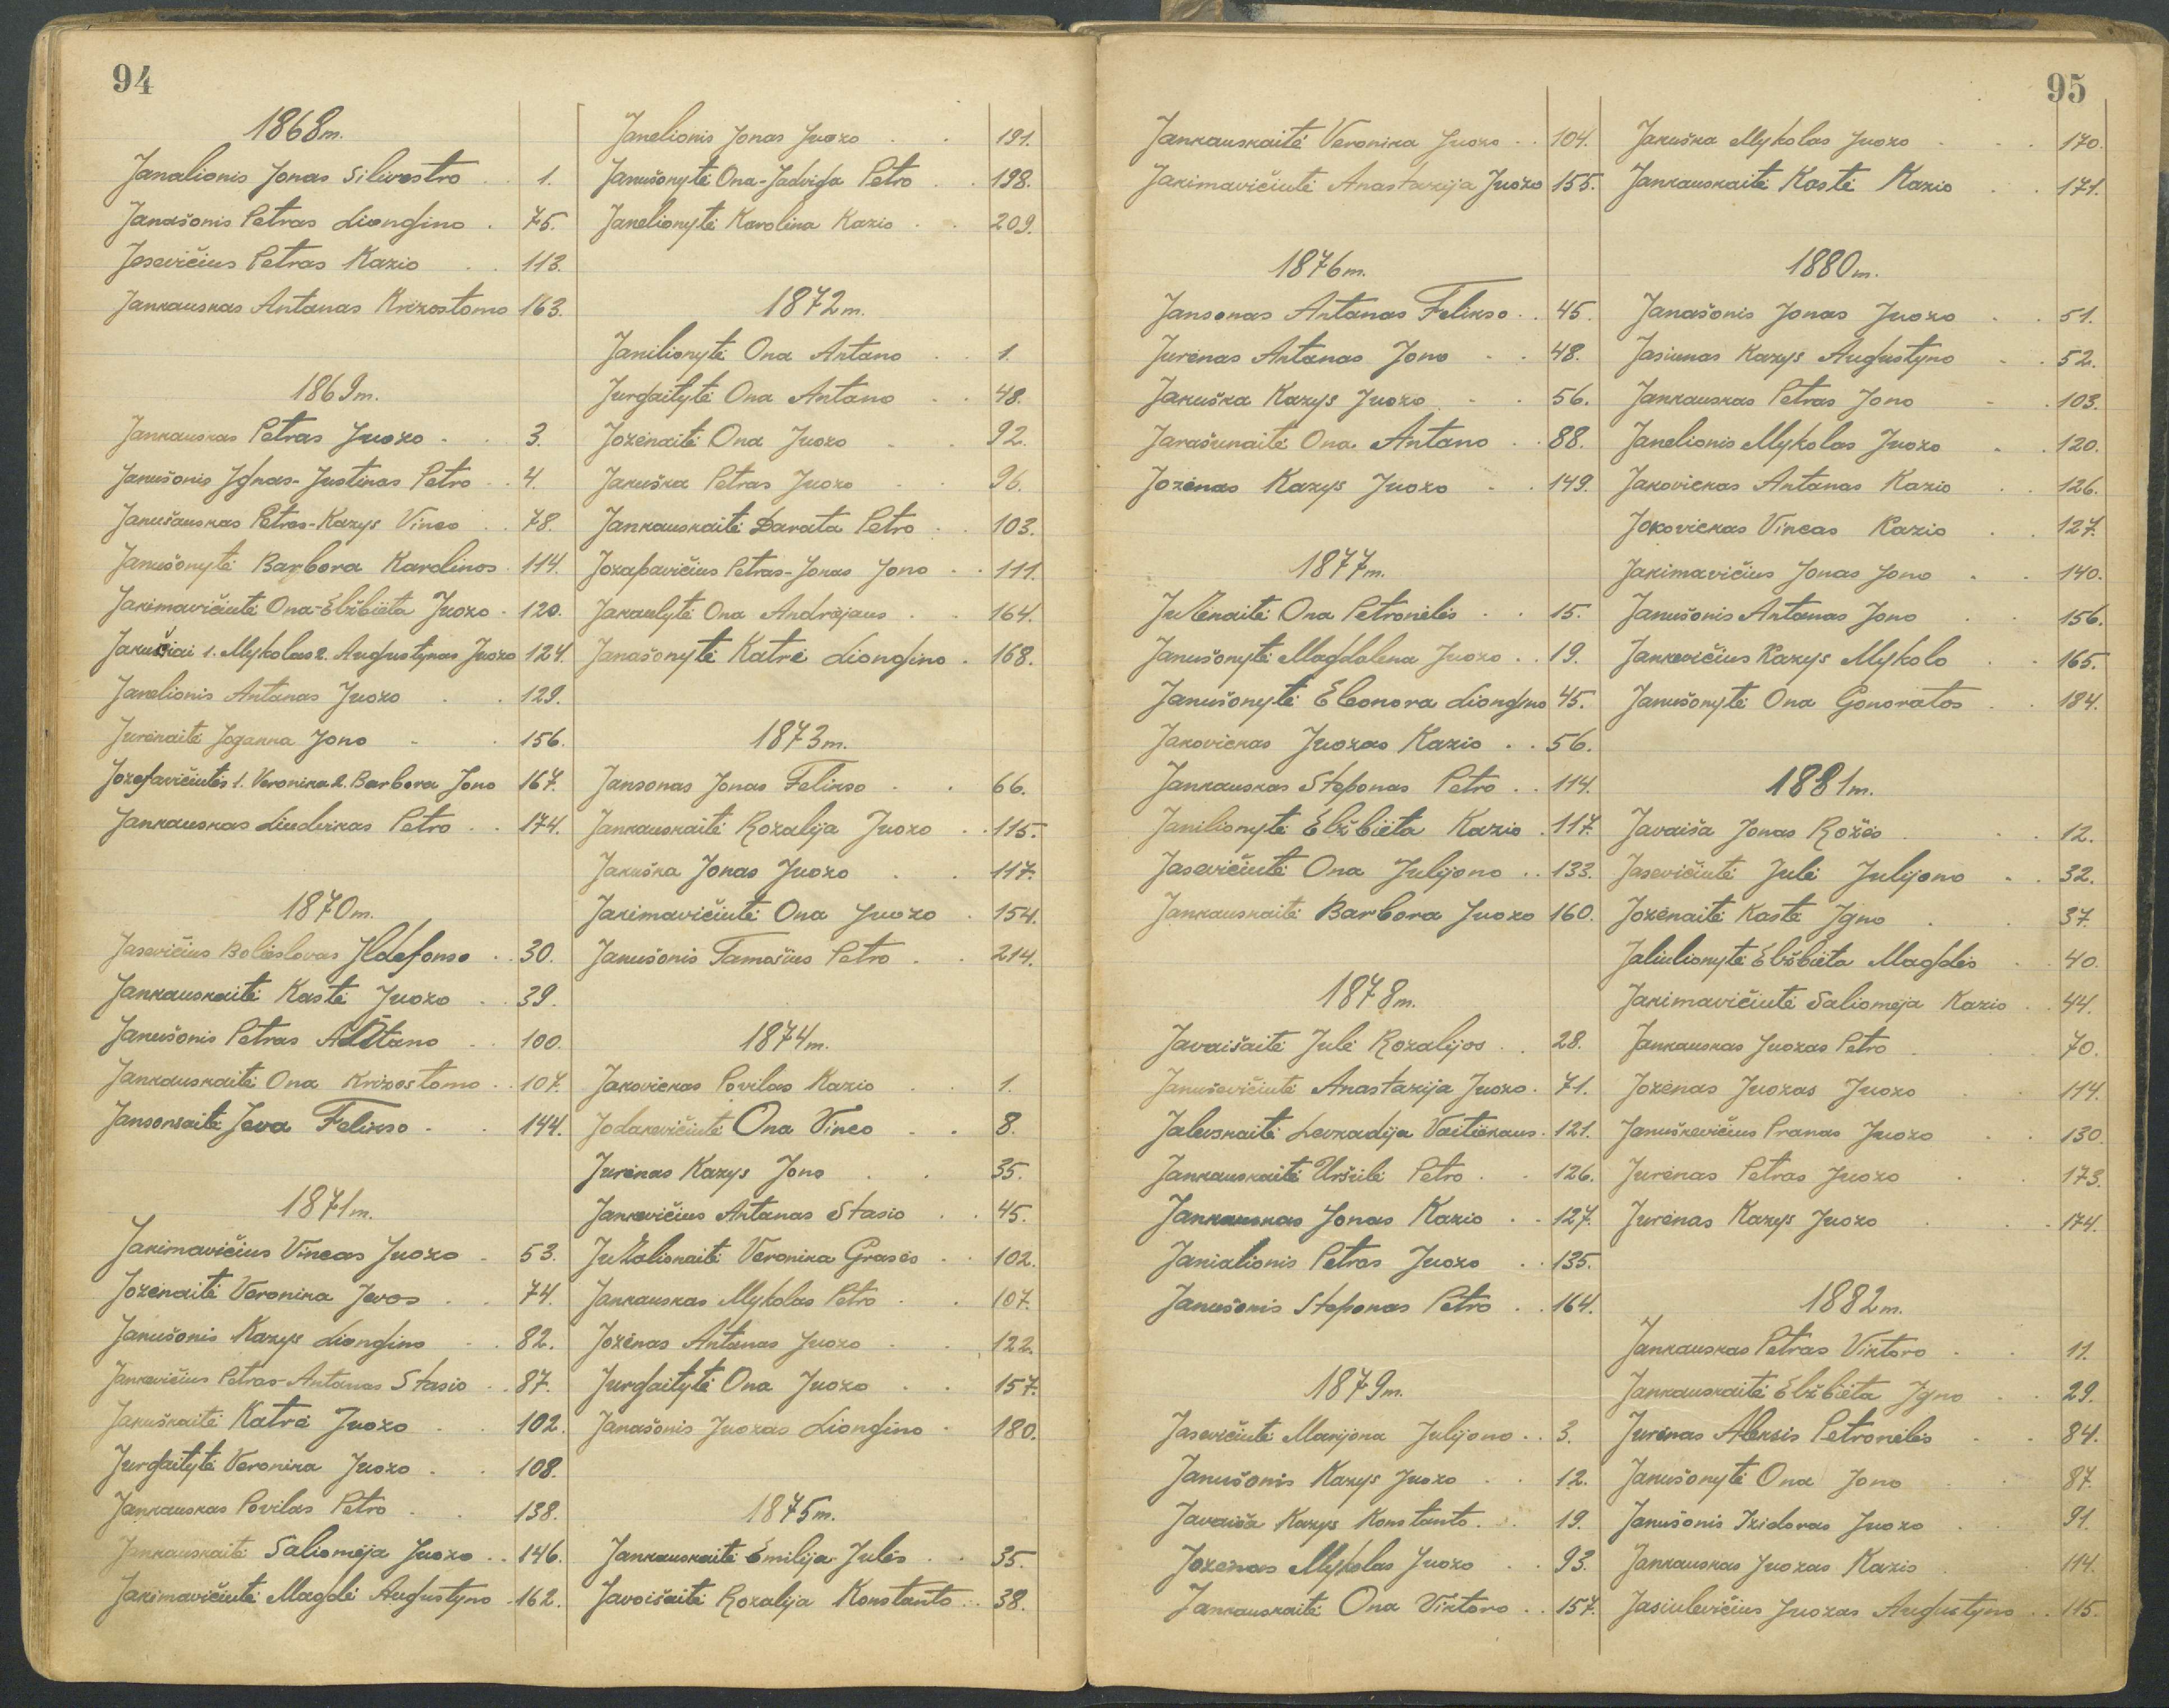 94
1868m.
Janalionis Jonas Silivestro . . 1.
Janašonis Petras Liongino . 75.
Jasevičius Petras Kazio . . 113.
Jankauskas Antanas Krizostomo 163.
1869m.
Jankauskas Petras Juozo . . 3.
Janušonis Ignas-Justinas Petro . . 4.
Janušauskas Petras-Kazys Vinco . . 78.
Janušonytė Barbora Karolinos . 114.
Jakimavičiutė Ona-Elžbieta Juozo . 120.
Jakušiai 1. Mykolas 2. Augustynas Juozo 124.
Janelionis Antanas Juozo . . 129.
Jurėnaitė Joganna Jono . . 156.
Jozefavičiutės 1. Veronika 2. Barbora Jono 167.
Jankauskas Liudvikas Petro . . 174.
1870m.
Jasevičius Boleslovas Ildefonso . . 30.
Jankauskaitė Kastė Juozo . . 39.
Janušonis Petras Antano . . 100.
Jankauskaitė Ona Krizostomo . . 107.
Jansonaitė Jeva Felikso . . 144.
1871m.
Jakimavičius Vincas Juozo . 53.
Jozėnaitė Veronika Jevos . . 74.
Janušonis Kazys Liongino . . 82.
Jankevičius Petras-Antanas Stasio . . 87.
Jakuškaitė Katrė Juozo . . 102.
Jurgaitytė Veronika Juozo . . 108.
Jankauskas Povilas Petro . . 138.
Jankauskaitė Saliomėja Juozo . . 146.
Jakimavičiutė Magdė Augustyno . 162.
Janelionis Jonas Juozo . . 191.
Janušonytė Ona-Jadviga Petro . . 198.
Janelionytė Karolina Kazio . . 209.
1872m.
Janilionytė Ona Antano . . 1.
Jurgaitytė Ona Antano . . 48.
Jozėnaitė Ona Juozo . . 92.
Jakuška Petras Juozo . . 96.
Jankauskaitė Darata Petro . . 103.
Jozapavičius Petras-Jonas Jono . . 111.
Jakaulytė Ona Andrėjaus . . 164.
Janašonytė Katrė Liongino . 168.
1873m.
Jansonas Jonas Felikso . . 66.
Jankauskaitė Rozalija Juozo . . 115.
Jakuška Jonas Juozo . . 117.
Jakimavičiutė Ona Juozo . 154.
Janušonis Tamošius Petro . . 214.
1874m.
Jakovickas Povilas Kazio . . 1.
Jodakevičiutė Ona Vinco . . 8.
Jurėnas Kazys Jono . . 35.
Jankevičius Antanas Stasio . . 45.
Veronika Grasės . . 102.
Jankauskas Mykolas Petro . . 107.
Jozėnas Antanas Juozo . . 122.
Jurgaitytė Ona Juozo . . 157.
Janašonis Juozas Liongino . 180.
1875m.
Jankauskaitė Emilija Julės . . 35.
Javoišaitė Rozalija Konstanto . . 38.
95
Jankauskaitė Veronika Juozo . . 104.
Jakimavičiutė Anastazija Juozo 155.
1876m.
Jansonas Antanas Felikso . . 45.
Jurėnas Antanas Jono . . 48.
Jakuška Kazys Juozo . . 56.
Jarašunaitė Ona Antano . . 88.
Jozėnas Kazys Juozo . . 149.
1877m.
Ona Petronėlės . . 15.
Janušonytė Magdalena Juozo . . 19.
Janušonytė Eleonora Liongino 45.
Jakovickas Juozas Kazio . . 56.
Jankauskas Steponas Petro . . 114.
Janilionytė Elžbieta Kazio . 117.
Jasevičiutė Ona Julijono . . 133.
Jankauskaitė Barbora Juozo 160.
1878m.
Javaišaitė Julė Rozalijos . . 28.
Januševičiutė Anastazija Juozo . 71.
Jaleskaitė Levkadija Vaitiekaus . 121.
Jankauskaitė Uršulė Petro . . 126.
Jankauskas Jonas Kazio . . 127.
Janialionis Petras Juozo . . 135.
Janušonis Steponas Petro . . 164.
1879m.
Jasevičiutė Marijona Julijono . . 3.
Janušonis Kazys Juozo . . 12.
Javaiša Kazys Konstanto . . 19.
Jozėnas Mykolas Juozo . . 93.
Jankauskaitė Ona Viktoro . . 157.
Jakuška Mykolas Juozo . . . 170.
Jankauskaitė Kastė Kazio . . 171.
1880m.
Janašonis Jonas Juozo . . 51.
Jasiunas Kazys Augustyno . . 52.
Jankauskas Petras Jono . . 103.
Janelionis Mykolas Juozo . . 120.
Jakovickas Antanas Kazio . . 126.
Jokovickas Vincas Kazio . . 127.
Jakimavičius Jonas Jono . . 140.
Janušonis Antanas Jono . . 156.
Jankevičius Kazys Mykolo . . 165.
Janušonytė Ona Gonoratos . . 184.
1881m.
Javaiša Jonas Rožės . . 12.
Jasevičiutė Julė Julijono . . 32.
Jozėnaitė Kastė Igno . . 37.
Jaliulionytė Elžbieta Magdės . . 40.
Jakimavičiutė Saliomėja Kazio . . 44.
Jankauskas Juozas Petro . . 70.
Jozėnas Juozas Juozo . . 114.
Januškevičius Pranas Juozo . . 130.
Jurėnas Petras Juozo . . 173.
Jurėnas Kazys Juozo . . 174.
1882m.
Jankauskas Petras Viktoro . . 11.
Jankauskaitė Elžbieta Igno . . 29.
Jurėnas Aleksis Petronėlės . . 84.
Janušonytė Ona Jono . . 87.
Janušonis Izidoras Juozo . . 91.
Jankauskas Juozas Kazio . 114.
Jasiulevičius Juozas Augustyno . . 115.